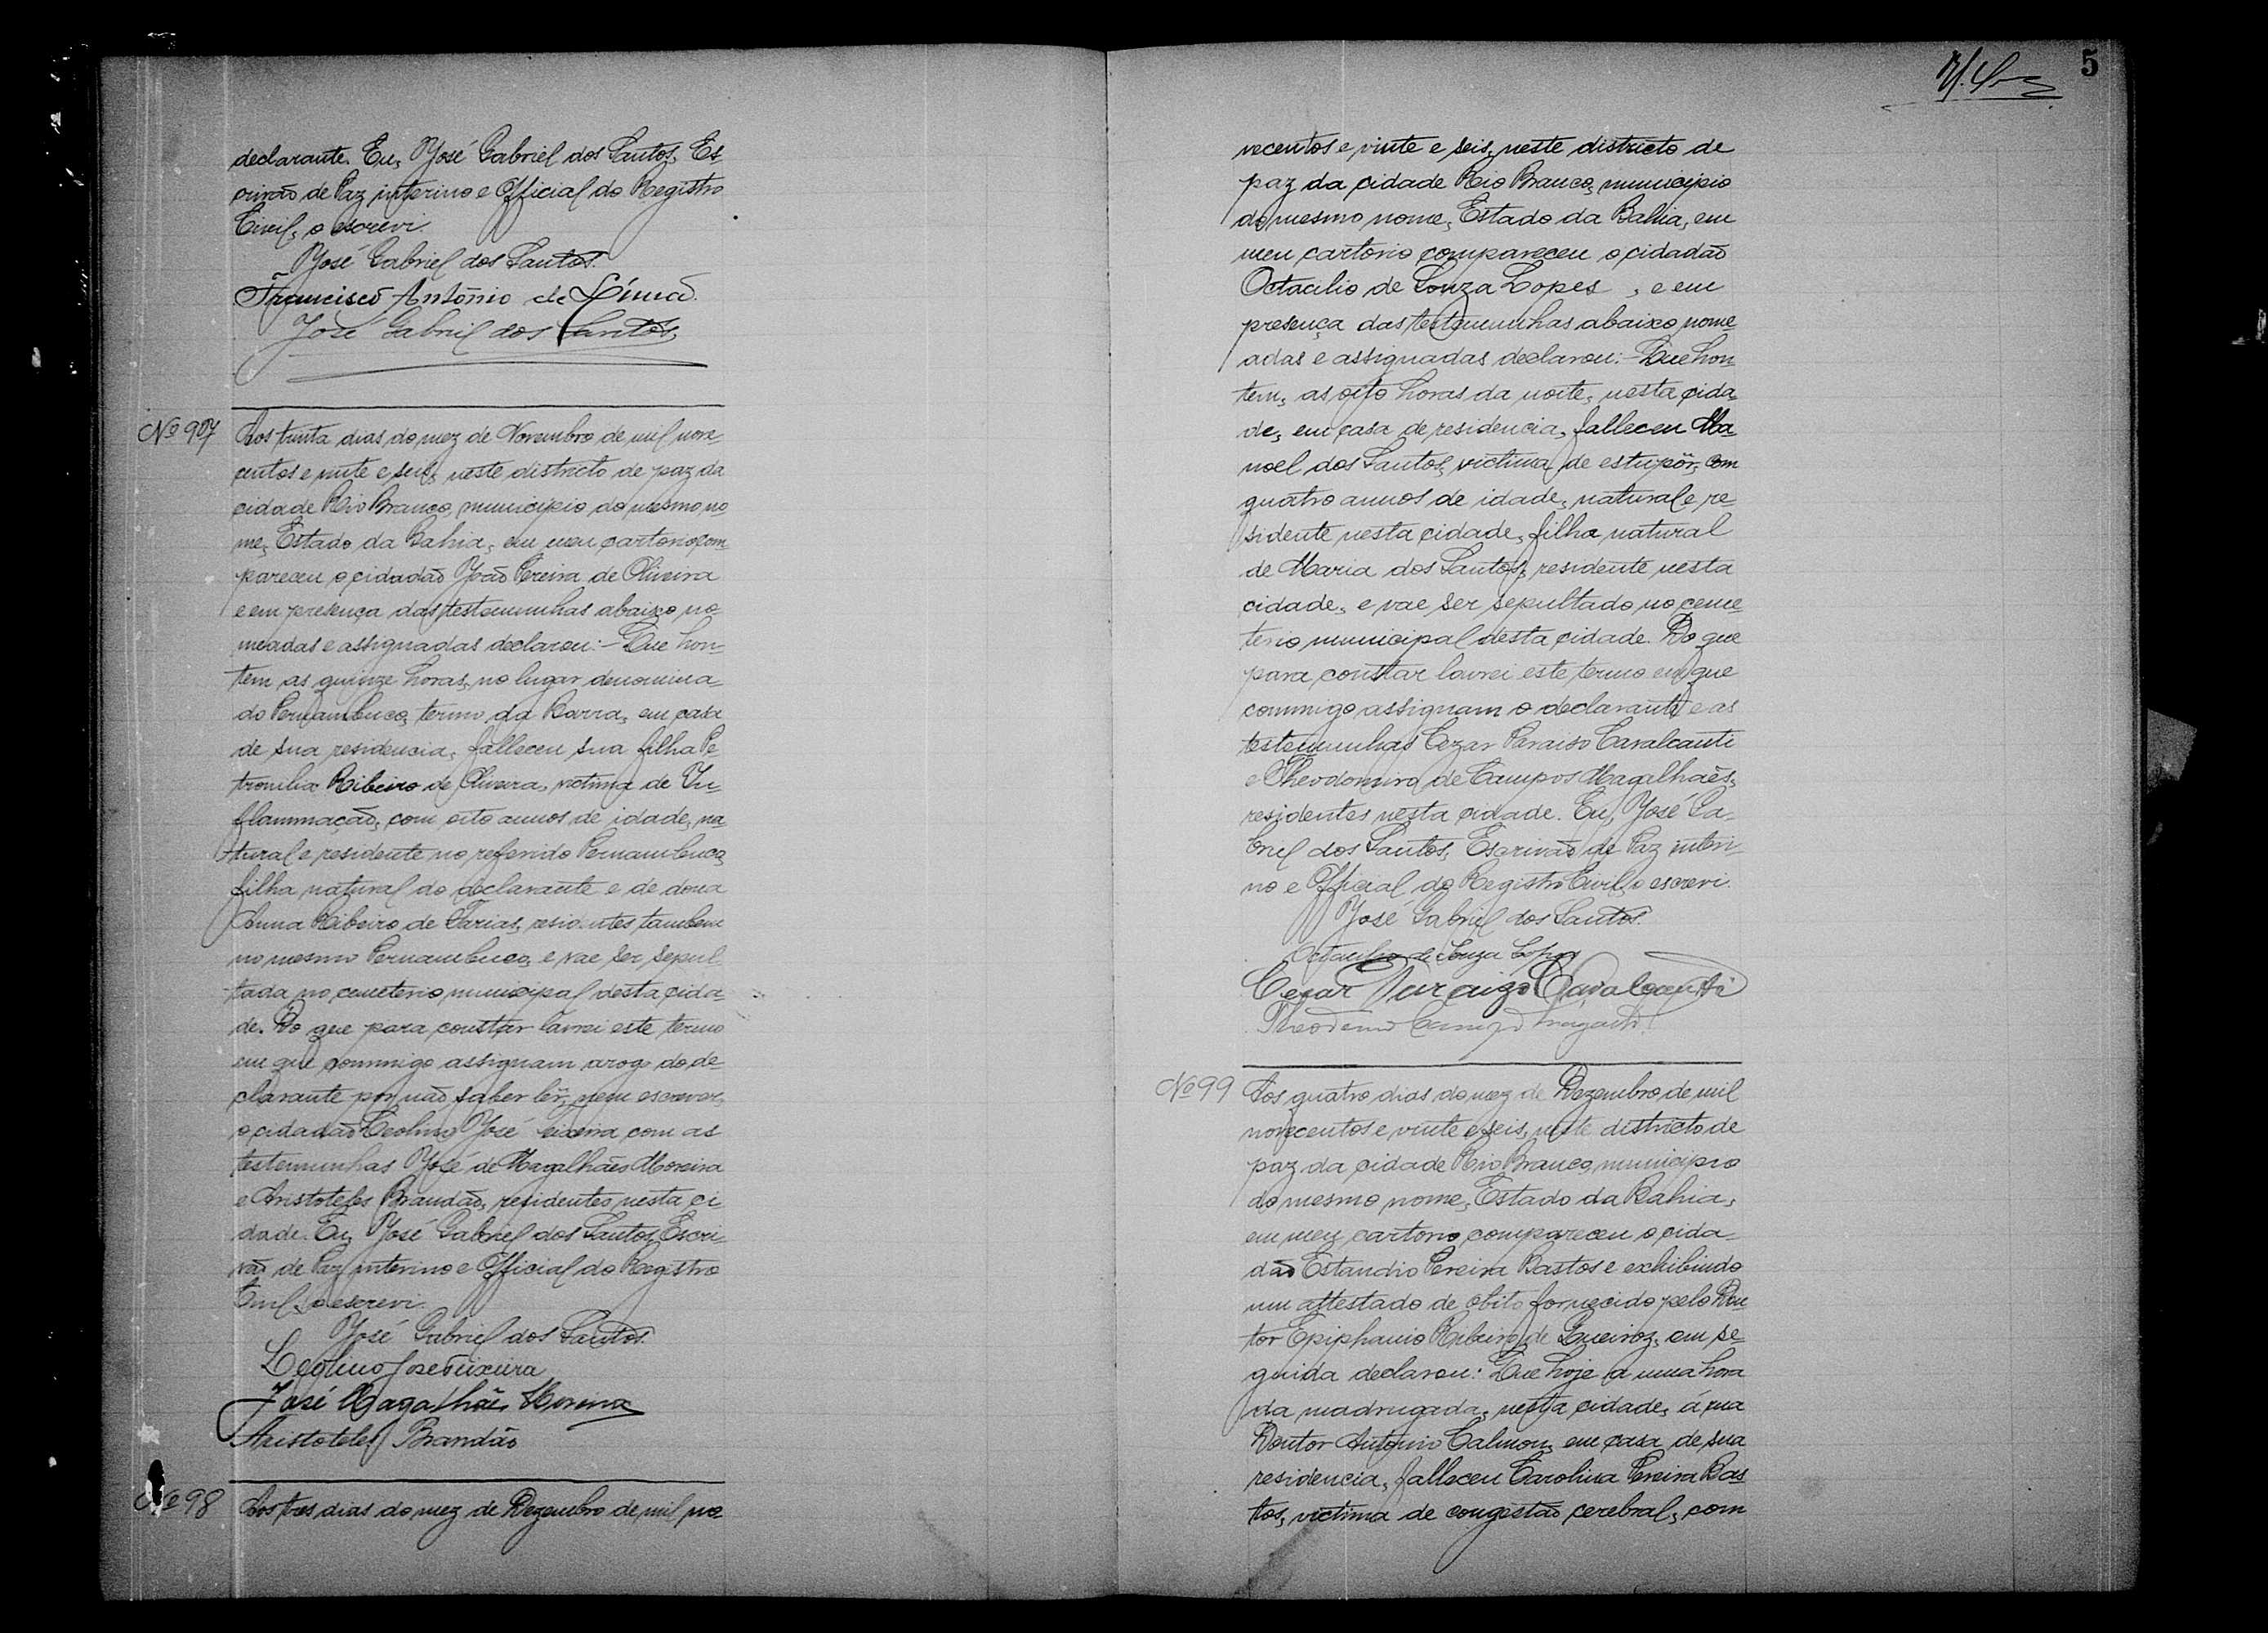 declarante. Eu, José Gabriel dos Santos, Es-
crivão de Paz interino e Official do Registro
Civil, o escrevi.
José Gabriel dos Santos.
Francisco Antônio de Lima.
José Gabriel dos Santos,
Nº 97
Aos trinta dias do mez de Novembro de mil nove-
centos e vinte e seis, neste districto de paz da
cidade Rio Branco, municipio do mesmo no-
me, Estado da Bahia, em meu cartorio com-
pareceu o cidadão João Pereira de Oliveira
e em presença das testemunhas abaixo no-
meadas e assignadas declarou:- Que hon-
tem as quinze horas, no lugar denomina-
do Pernambuco, termo da Barra, em casa
de sua residencia, falleceu sua filha Pe-
tronilia Ribeiro de Oliveira, victima de In-
flammação, com oito annos de idade, na-
tural e residente no referido Pernambuco,
filha natural do declarante e de dona
Anna Ribeiro de Farias, residentes tambem
no mesmo Pernambuco, e vae ser sepul-
tada no cemeterio municipal desta cida-
de. Do que para constar lavrei este termo
em que commigo assignam arogo do de-
clarante por não saber lêr, nem escrever,
o cidadão Leolino José Teixeira com as
testemunhas José de Magalhães Moreira
e Aristoteles Brandão, residentes nesta ci-
dade. Eu, José Gabriel dos Santos, Escri-
vão de Paz interino e Official do Registro
Civil, o escrevi.
José Gabriel dos Santos.
Leolino José Teixeira
José Magalhães Moreira
Aristoteles Brandão
Nº 98
Aos tres dias do mez de Dezembro de mil no-
5
vecentos e vinte e seis, neste districto de
paz da cidade Rio Branco, municipio
do mesmo nome, Estado da Bahia, em
meu cartorio compareceu o cidadão
Octacilio de Souza Lopes, e em
presença das testemunhas abaixo nome-
adas e assignadas declarou:- Que hon-
tem, as oito horas da noite, nesta cida-
de, em casa de residencia, falleceu Ma-
noel dos Santos, victima de estupôr, com
quatro annos de idade, natural e re-
sidente nesta cidade, filho natural
de Maria dos Santos, residente nesta
cidade, e vae ser sepultado no ceme-
terio municipal desta cidade. Do que
para constar lavrei este termo em que
commigo assignam o declarante e as
testemunhas Cezar Paraiso Cavalcanti
e Theodomiro de Campos Magalhães,
residentes nesta cidade. Eu, José Ga-
briel dos Santos, Escrivão de Paz interi-
no e Official do Registro Civil, o escrevi.
José Gabriel dos Santos.
Octacilio de Souza Lopes
Cezar Paraizo Cavalcanti
Nº 99
Aos quatro dias do mez de Dezembro de mil
novecentos e vinte e seis, neste districto de
paz da cidade Rio Branco, municipio
do mesmo nome, Estado da Bahia,
em meu cartorio compareceu o cida-
dão Pereira Bastos e exhibindo
um attestado de obito fornecido pelo Dou-
tor Epiphanio Ribeiro de Queiroz, em se-
guida declarou: Que hoje a uma hora
da madrugada, nesta cidade, á rua
Doutor Antonio Calmon, em casa de sua
residencia, falleceu Carolina Pereira Bas-
tos, victima de congestão cerebral, com